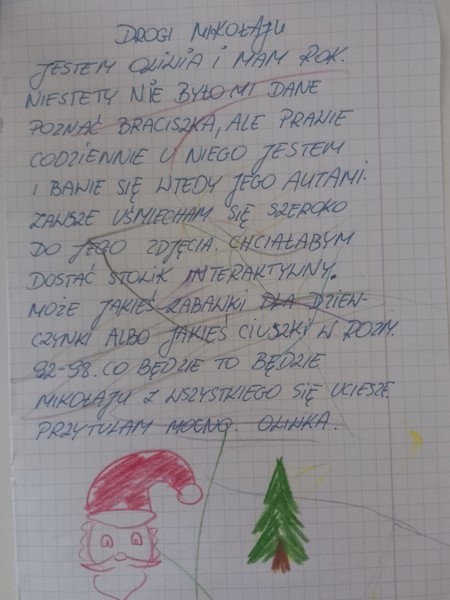 DROGI MIKOŁAJU
JESTEM OLIWIA I MAM ROK.
NIESTETY NIE BYŁO MI DANE
POZNAĆ BRACISZKA, ALE PRAWIE
CODZIENNIE U NIEGO JESTEM
I BAWIE SIĘ WTEDY JEGO AUTAMI.
ZAWSZE UŚMIECHAM SIĘ SZEROKO
DO JEGO ZDJĘCIA. CHCIAŁABYM
DOSTAĆ STOLIK INTERAKTYWNY.
MOŻE JAKIEŚ ZABAWKI DLA DZIEW-
CZYNKI ALBO JAKIEŚ CIUSZKI W ROZM.
92-98. CO BĘDZIE TO BĘDZIE
MIKOŁAJU Z WSZYSTKIEGO SIĘ UCIESZE.
PRZYTULAM MOCNO. OLIWKA..